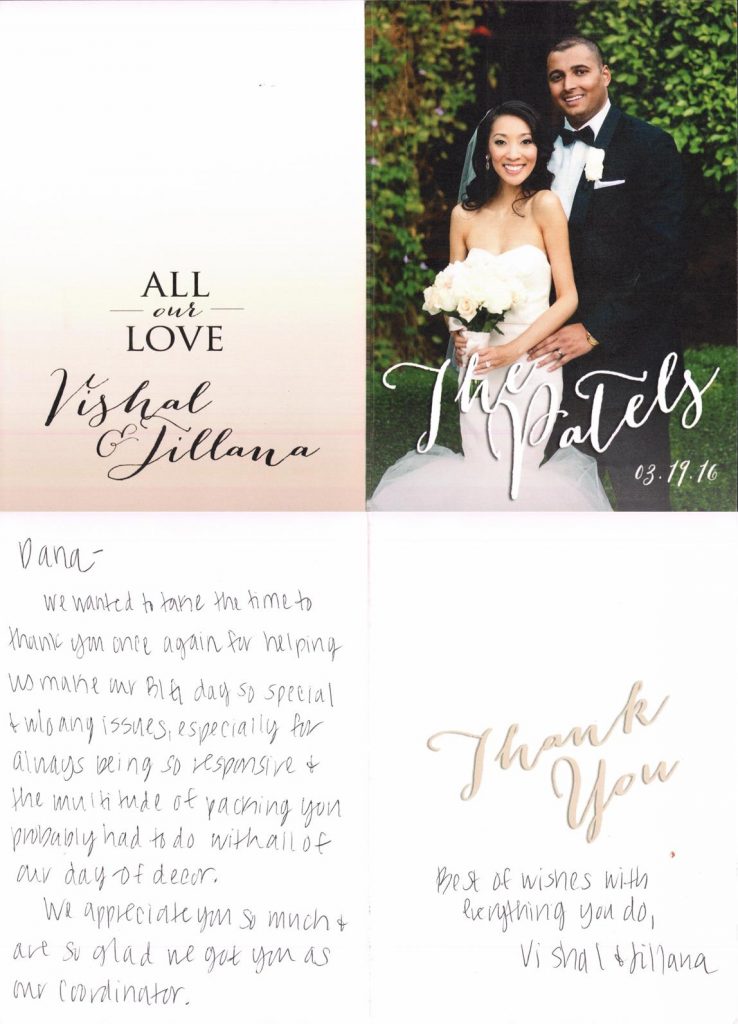 ALL
our
LOVE
Vishal
& Jillana
The
Patels
03.19.16
Dana-
We wanted to take the time to
thank you once again for helping
us make our BIG day so special
& w/o any issues, especially for
always being so responsive &
the multitude of packing you
probably had to do with all of
our day-of decor.
We appreciate you so much &
are so glad we got you as
our coordinator.
Thank
You
Best of wishes with
everything you do,
Vishal & Jillana